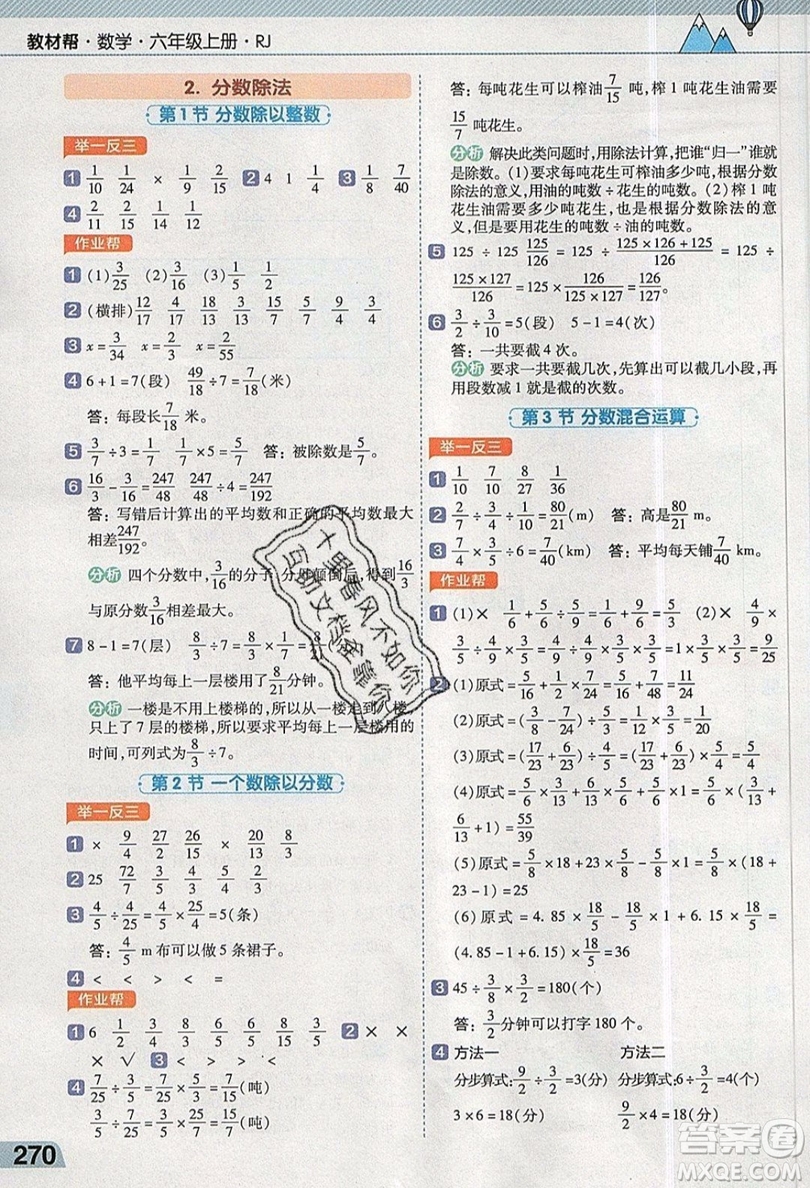 教材帮·数学·六年级上册·RJ
2. 分数除法
第1节 分数除以整数
举一反三
1 1/10 1/24 × 1/6 2 4 1 1/4 3 1/8 7/40
4 2/11 2/15 1/14 1/12
作业帮
1 (1) 3/25 (2) 3/16 (3) 1/5 1/3
2 (横排) 12/17 4/17 3/16 3/32 2/15 4/15
3 x=3/34 x=2/3 x=2/55
4 6+1=7(段) 49/18÷7=7/18(米)
答:每段长7/18米。
5 3/7÷3=1/7 1/7×5=5/7 答:被除数是5/7。
6 16/3-3/16=247/48 247/48÷4=247/192
答:写错后计算出的平均数和正确的平均数最大
相差247/192。
分析 四个分数中,3/16的分子、分母颠倒后,得到16/3
与原分数3/16相差最大。
7 8-1=7(层) 8/3÷7=8/3×1/7=8/21(分钟)
答:他平均每上一层楼用了8/21分钟。
分析 一楼是不用上楼梯的,所以从一楼走到八楼,
只上了7层的楼梯,所以要求平均每上一层楼的时
间,可列式为8/3÷7。
第2节 一个数除以分数
举一反三
1 × 9/4 27/2 26/15 × 20/3 8/3
2 25 72/7 3/5 2/3
3 4/5÷4/25=4/5×25/4=5(条)
答:4/5 m布可以做5条裙子。
4 < > < < < =
作业帮
1 6 1/2 3/2 6/7 6/5 5/6 6/5 5/6 2 × ×
× √ 3 < > < = >
4 7/25÷3/5=7/25×5/3=7/15(吨)
3/5÷7/25=3/5×25/7=15/7(吨)
答:每吨花生可以榨油7/15吨,榨1吨花生油需要
15/7吨花生。
分析 解决此类问题时,用除法计算,把谁“归一”谁就
是除数。(1)要求每吨花生可榨油多少吨,根据分数
除法的意义,用油的吨数÷花生的吨数。(2)榨1吨
花生油需要多少吨花生,也是根据分数除法的意
义,但是要用花生的吨数÷油的吨数。
5 125÷125 125/126=125÷(125×126+125)/126=125÷
125×127/126=125×126/(125×127)=126/127
6 3/2÷3/10=5(段) 5-1=4(次)
答:一共要截4次。
分析 要求一共要截几次,先算出可以截几小段,再
用段数减1就是截的次数。
第3节 分数混合运算
举一反三
1 1/10 7/10 8/27 1/36
2 8/9÷1/2÷7/15=80/21(m) 答:高是80/21 m。
3 4/7÷3/4÷6=8/63(km) 答:平均每天铺8/63 km。
作业帮
1 (1)× 1/6÷5/6×1/6=1/6×6/5×1/6=1/30 (2)×
4/5×3/5÷4/5×3/5=4/5×3/5×5/4×3/5=9/25
2 (1)原式=5/16×1/2×24/5=3/4
(2)原式=(3/8-7/24)×3/5=1/12×3/5=1/20
(3)原式=3/8÷(2/5÷8/5)=3/8÷1/4=3/2
(4)原式=5/6×5/3+5/6×6/13+5/6=5/6×(5/3+
6/13+1)=55/21 39
(5)原式=5/8×18+23×5/8-5/8=5/8×(18+
23-1)=25
(6)原式=4.85×18/5-18/5+6.15×18/5=
(4.85-1+6.15)×18/5=36
3 45÷3/8×3/2=180(个)
答:3/2分钟可以打字180个。
4 方法一 方法二
分步算式:9/2÷3/2=3(分) 分步算式:6÷3/2=4(个)
3×6=18(分) 9/2×4=18(分)
270
十里春风不如你
互助文档全靠你
答案圈
MXQE.COM